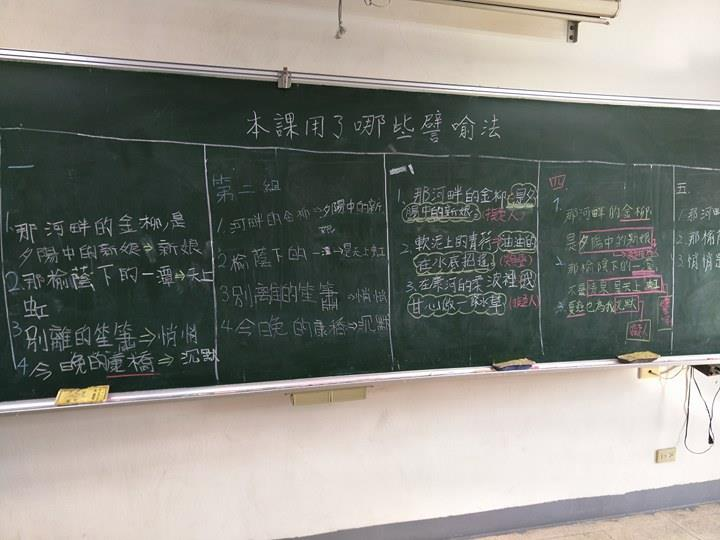 本課用了哪些譬喻法
一
1. 那河畔的金柳,是
夕陽中的新娘⇒新娘
2 那榆蔭下的一潭⇒天上
虹
3 別離的笙簫⇒悄悄
4 今晚的康橋⇒沉默
第二組
1. 河畔的金柳⇒夕陽中的新
娘
2. 榆蔭下的一潭⇒是天上虹
3 別離的笙簫⇒悄悄
4 今日晚的康橋⇒沉默
1. 那河畔的金柳,是夕
陽中的新娘 (擬人)
2. 軟泥上的青荇⇒油油的
在水底招搖
3. 在康河的柔波裡我
甘心做一條水草 (擬人)
四.
1. 那河畔的金柳
是夕陽中的新娘
2. 那榆蔭下的一潭
不是清泉是天上虹
3. 夏蟲也為我沉默
擬人
五.
1. 那河
2. 那榆
3. 悄悄